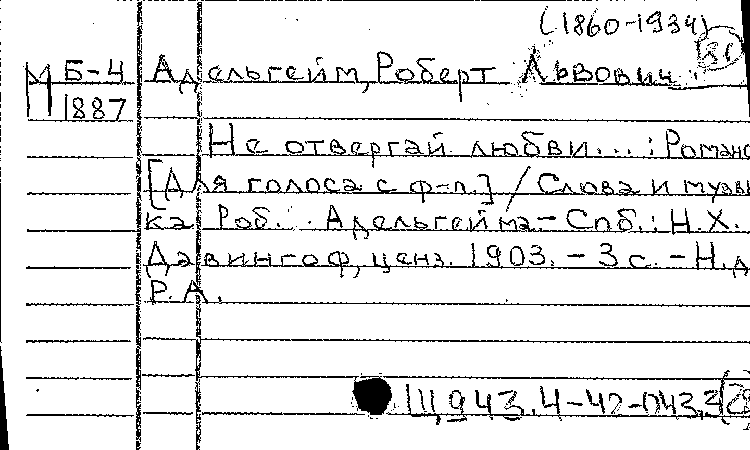 (1860-1934)
31
М Б-4 Адельгейм, Роберт Львович.
1887
Не отвергай любви...: Романс
[Для голоса с ф-п.] / Слова и музы-
ка Роб. Адельгейма.- Спб.: Н.Х.
Давингоф, ценз. 1903. - 3 с. - Н.д.
Р.А.
Щ943.4-42-043,3(2